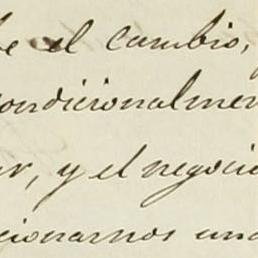 be el cambio,
condicionalmen
er, y el negocio
cionarnos una